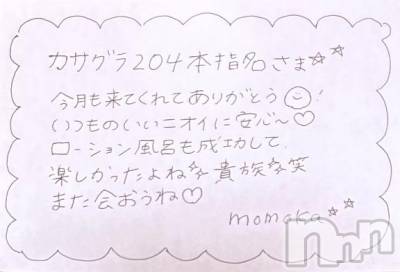 カサグラ204本指名さま☆☆
今月も来てくれてありがとう☺!
いつものいいニオイに安心〜♡
ローション風呂も成功して
楽しかったよね☆貴族☆笑
また会おうね♡
momoka☆☆